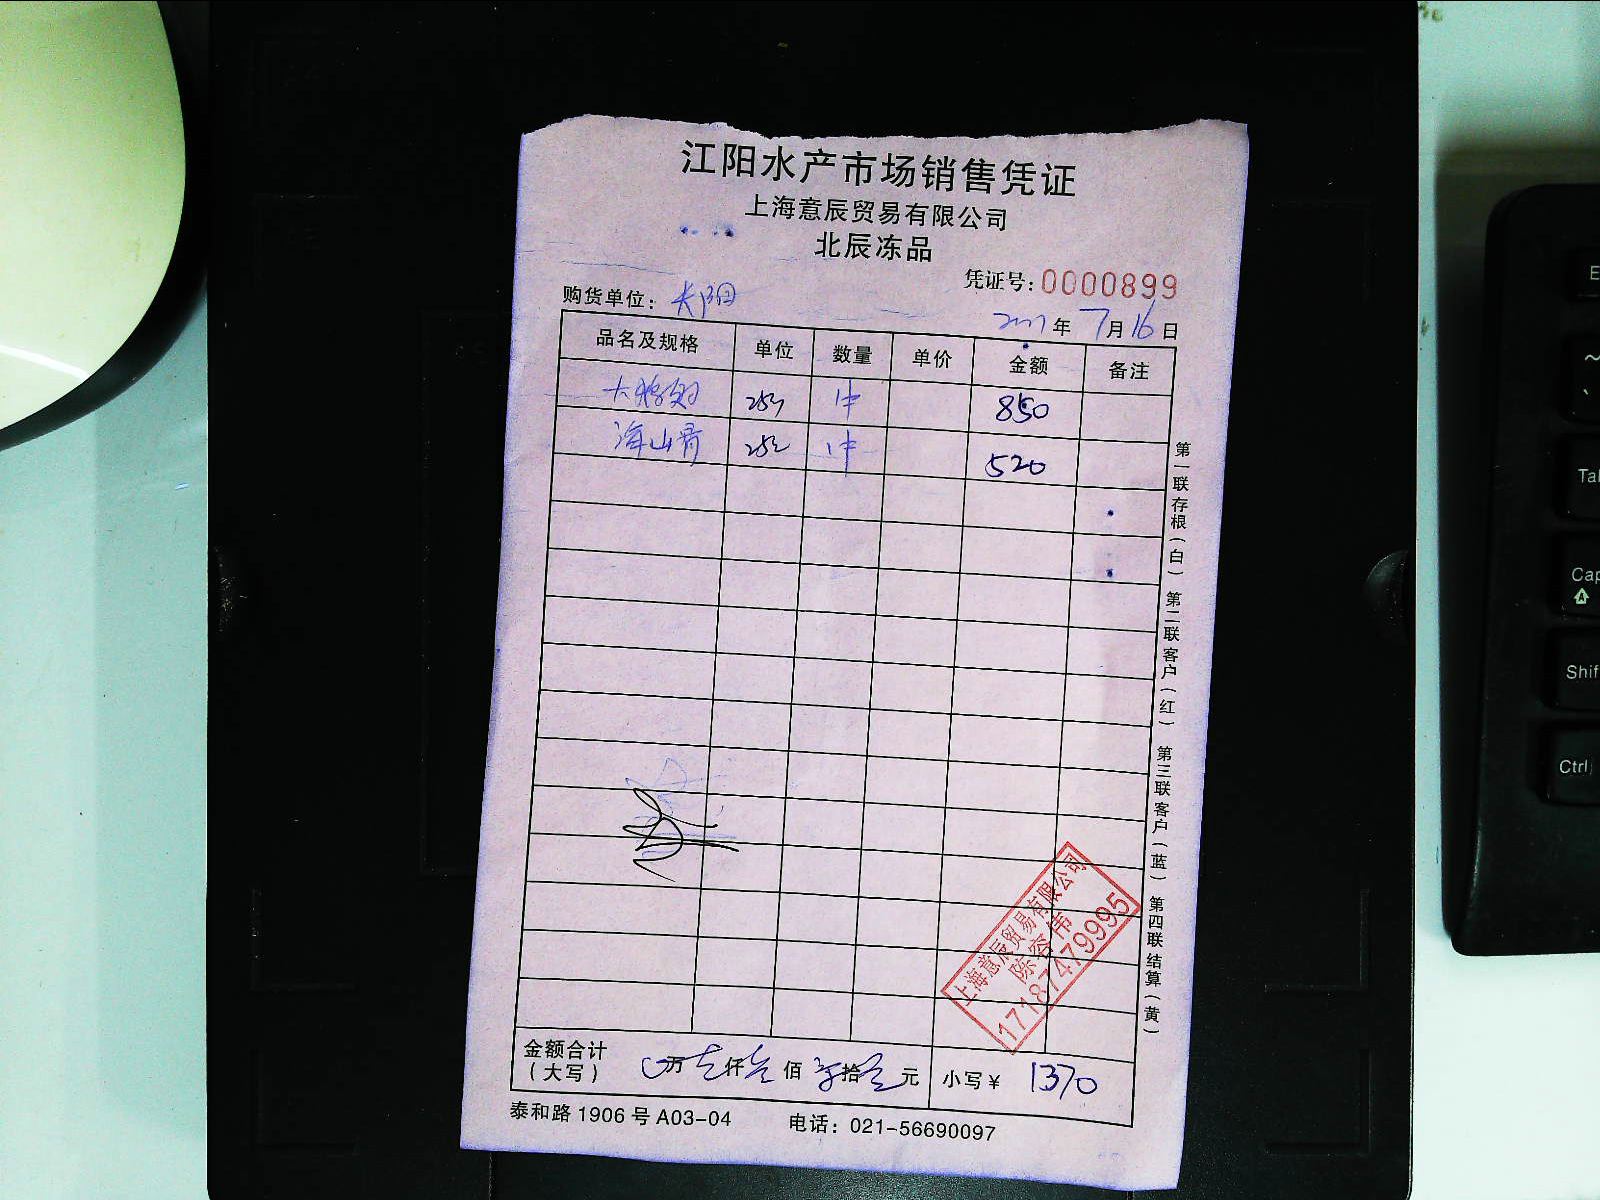 江阳水产市场销售凭证
上海意辰贸易有限公司
北辰冻品
凭证号：0000899
购货单位：
年 7月16日
品名及规格 单位 数量 单价 金额 备注
850
520
第一联存根（白） 第二联客户（红） 第三联客户（蓝） 第四联结算（黄）
上海意辰贸易有限公司
陈容伟
17187479995
金额合计（大写） 万 仟 佰 拾 元 小写￥ 1370
泰和路1906号A03-04 电话：021-56690097
Tab
Cap
Shif
Ctrl